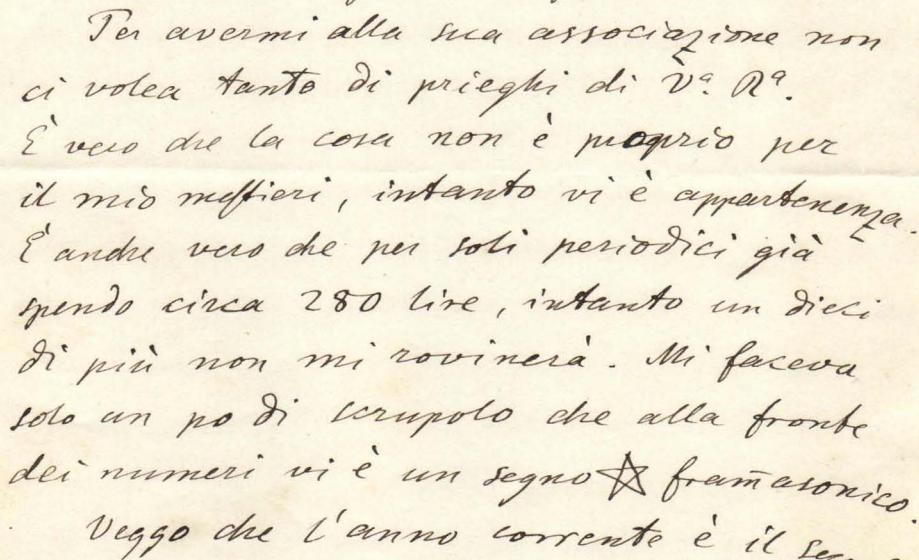 Per avermi alla sua associazione non
ci volea tanto di prieghi di Vª. Rª.
È vero che la cosa non è proprio per
il mio mestieri, intanto vi è appartenenza.
È anche vero che per soli periodici già
spendo circa 280 lire, intanto un dieci
di più non mi rovinerà. Mi faceva
solo un po di scrupolo che alla fronte
dei numeri vi è un segno ☆ fram̄asonico.
Veggo che l'anno corrente è il